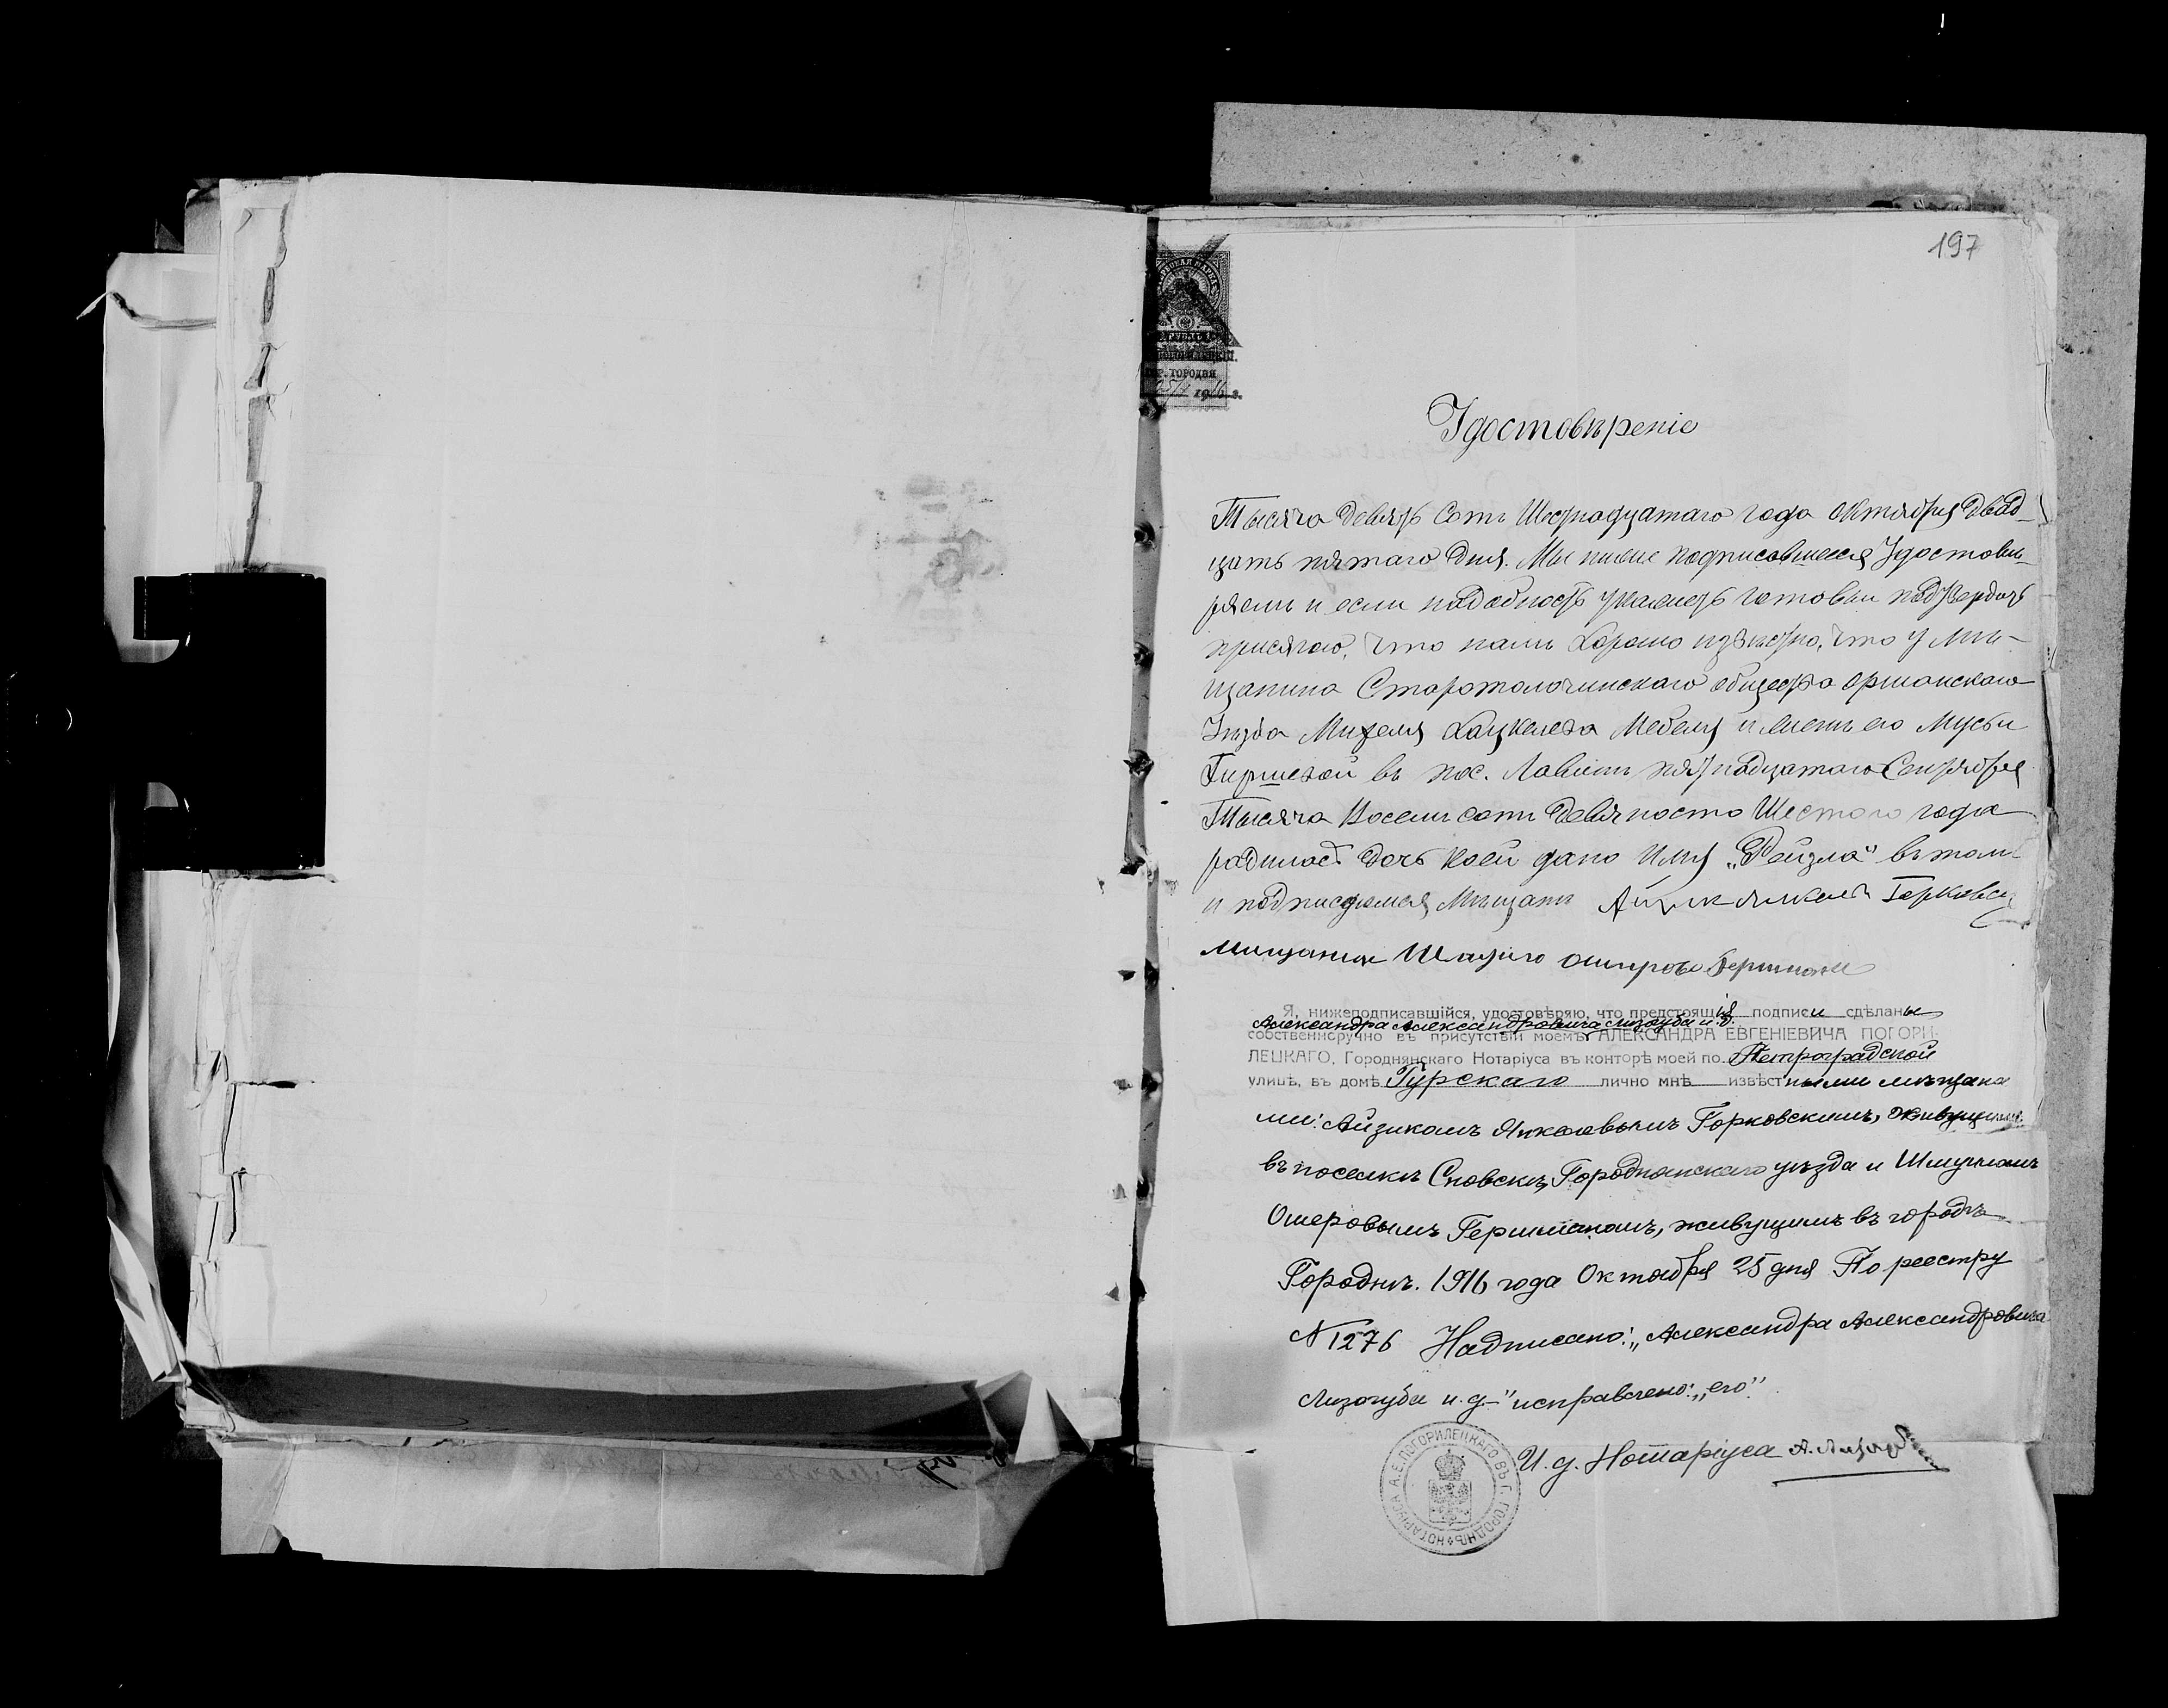 197
ГЕРБОВАЯ МАРКА
РУБЛЬ
ГОР. ГОРОДНЯ
25/X 1916 г.
Удостовѣреніе
Тысяча девять сотъ Шестнадцатаго года октября двад-
цать пятаго дня. Мы ниже подписавшиеся Удостовѣ-
ряемъ и если надобность укажетъ готовы подтвердить
присягою, что намъ хорошо извѣстно, что у мѣ-
щанина Старотолочинскаго общества Оршанскаго
Уѣзда Михеля Хацкелева Меделя и жены его Мусьи
Гиршевой въ пос. пятнадцатаго Сентября
Тысяча Восемь сотъ девяносто Шестого года
радилась дочь коей дано Имя „Рейзла" въ томъ
и подписуемся Мѣщанъ Айзик Янкелев Горковск
мещанин Ошеров Гершман
Я, нижеподписавшійся, удостовѣряю, что предстоящія подписи сдѣланы
Александра Александровича Лизогуба и. д.
собственноручно въ присутствіи моемъ АЛЕКСАНДРА ЕВГЕНІЕВИЧА ПОГОРИ-
ЛЕЦКАГО, Городнянскаго Нотаріуса въ конторѣ моей по Петроградской
улицѣ, въ домѣ Гурскаго лично мнѣ извѣстными мѣщана
ми: Айзикомъ Янкелевымъ Горковскимъ, живущимъ
въ поселкѣ Сновскѣ, Городнянскаго уѣзда и Шмуиломъ
Ошеровымъ Гершманомъ, живущимъ въ городѣ
Городнѣ. 1916 года Октября 25 дня По реестру
№ 1276 Надписано: „Александра Александровича
Лизогуба и. д." исправлено: „его".
И. д. Нотаріуса А. Лизогуб
НОТАРІУСА А. Е. ПОГОРИЛЕЦКАГО ВЪ Г. ГОРОДНѢ